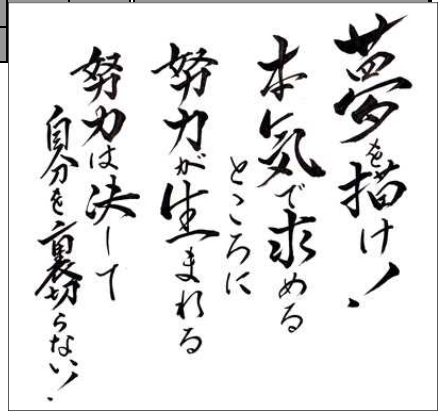 夢を描け!
本気で求める
ところに
努力が生まれる
努力は決して
自分を裏切らない!